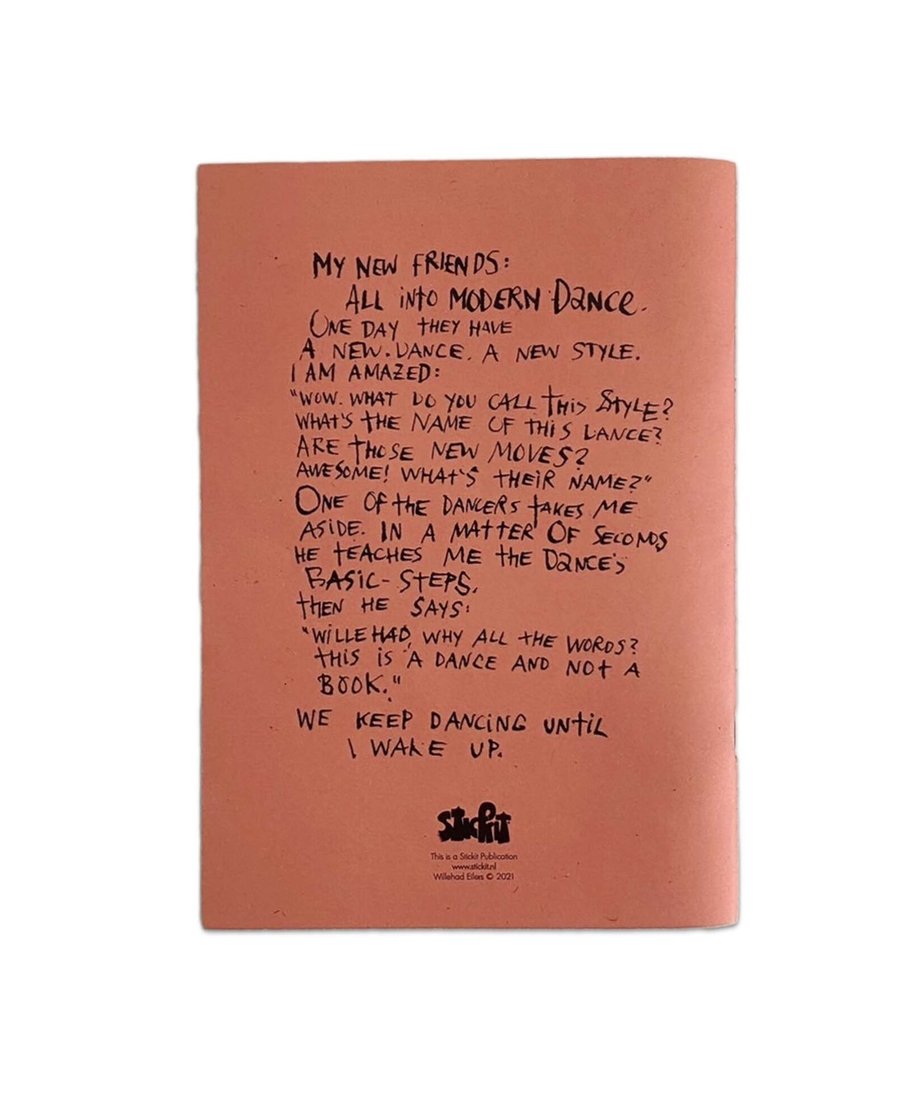 MY NEW FRIENDS:
ALL iNtO MODERN DANCE.
ONE DAY tHEY HAVE
A NEW.DANCE. A NEW STYLE.
I AM AMAZED:
"WOW. WHAT DO YOU CALL tHiS STYLE?
WHAT'S tHE NAME OF tHiS DANCE?
ARE tHOSE NEW MOVES?
AWESOME! WHAT'S tHEiR NAME?"
ONE OF tHE DANCERS tAKES ME
ASiDE. IN A MATTER OF SECONDS
HE tEACHES ME tHE DANCE'S
BASiC-STEPS.
tHEN HE SAYS:
"WiLLEHAD, WHY ALL tHE WORDS?
tHiS iS A DANCE AND NOt A
BOOK."
WE KEEP DANCING UNtiL
I WAKE UP.
Stickit
This is a Stickit Publication
www.stickit.nl
Willehad Eilers © 2021